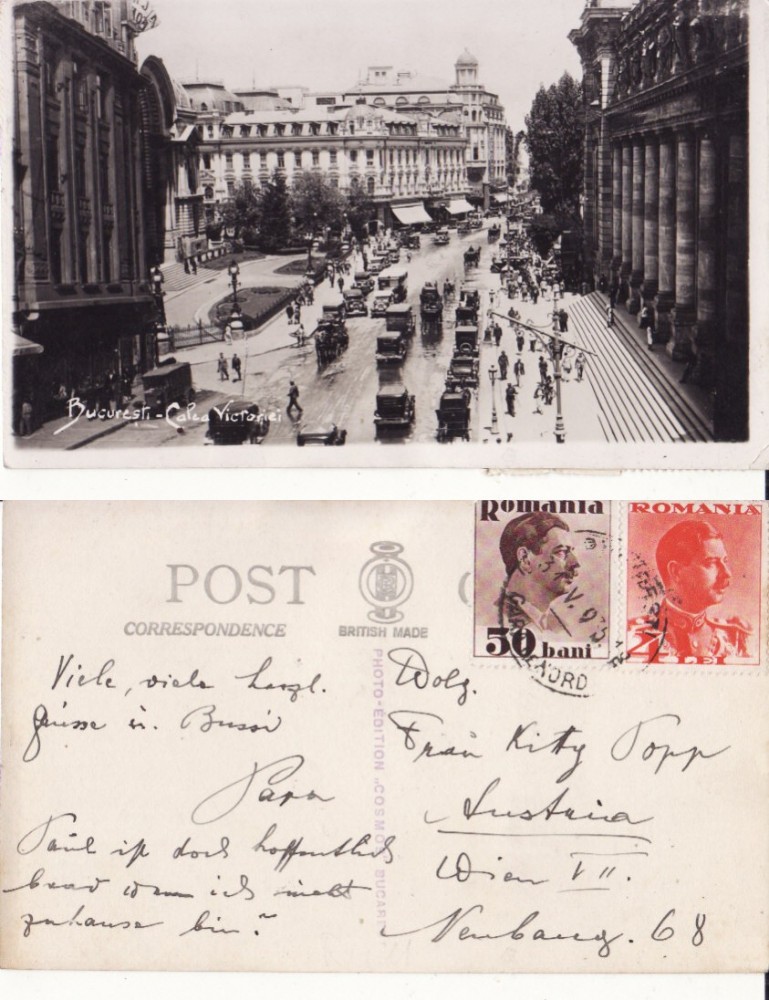 Bucureşti - Calea Victoriei
POST
CORRESPONDENCE
BRITISH MADE
PHOTO-EDITION „COSMO
BUCAR
Romania
50 bani
ROMANIA
LEI
V. 935
NORD
Viele, viele herzl.
Grüsse u. Bussi
Papa
Paul ist doch hoffentlich
brav wenn ich nicht
zuhause bin?
Frau Kitty Popp
Austria
Wien VII.
Neubaug. 68